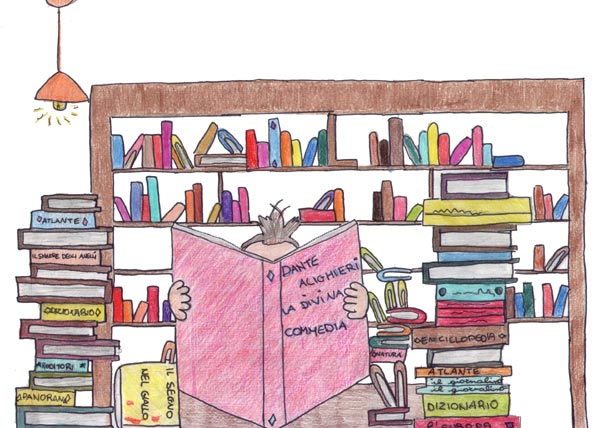 ATLANTE
IL SIGNORE DEGLI ANELLI
DIZIONARIO
PANORAMA
IL SEGNO
NEL GIALLO
DANTE
ALIGHIERI
LA DIVINA
COMMEDIA
NATURA
ENCICLOPEDIA
ATLANTE
il giornalino
il giornalino
DIZIONARIO